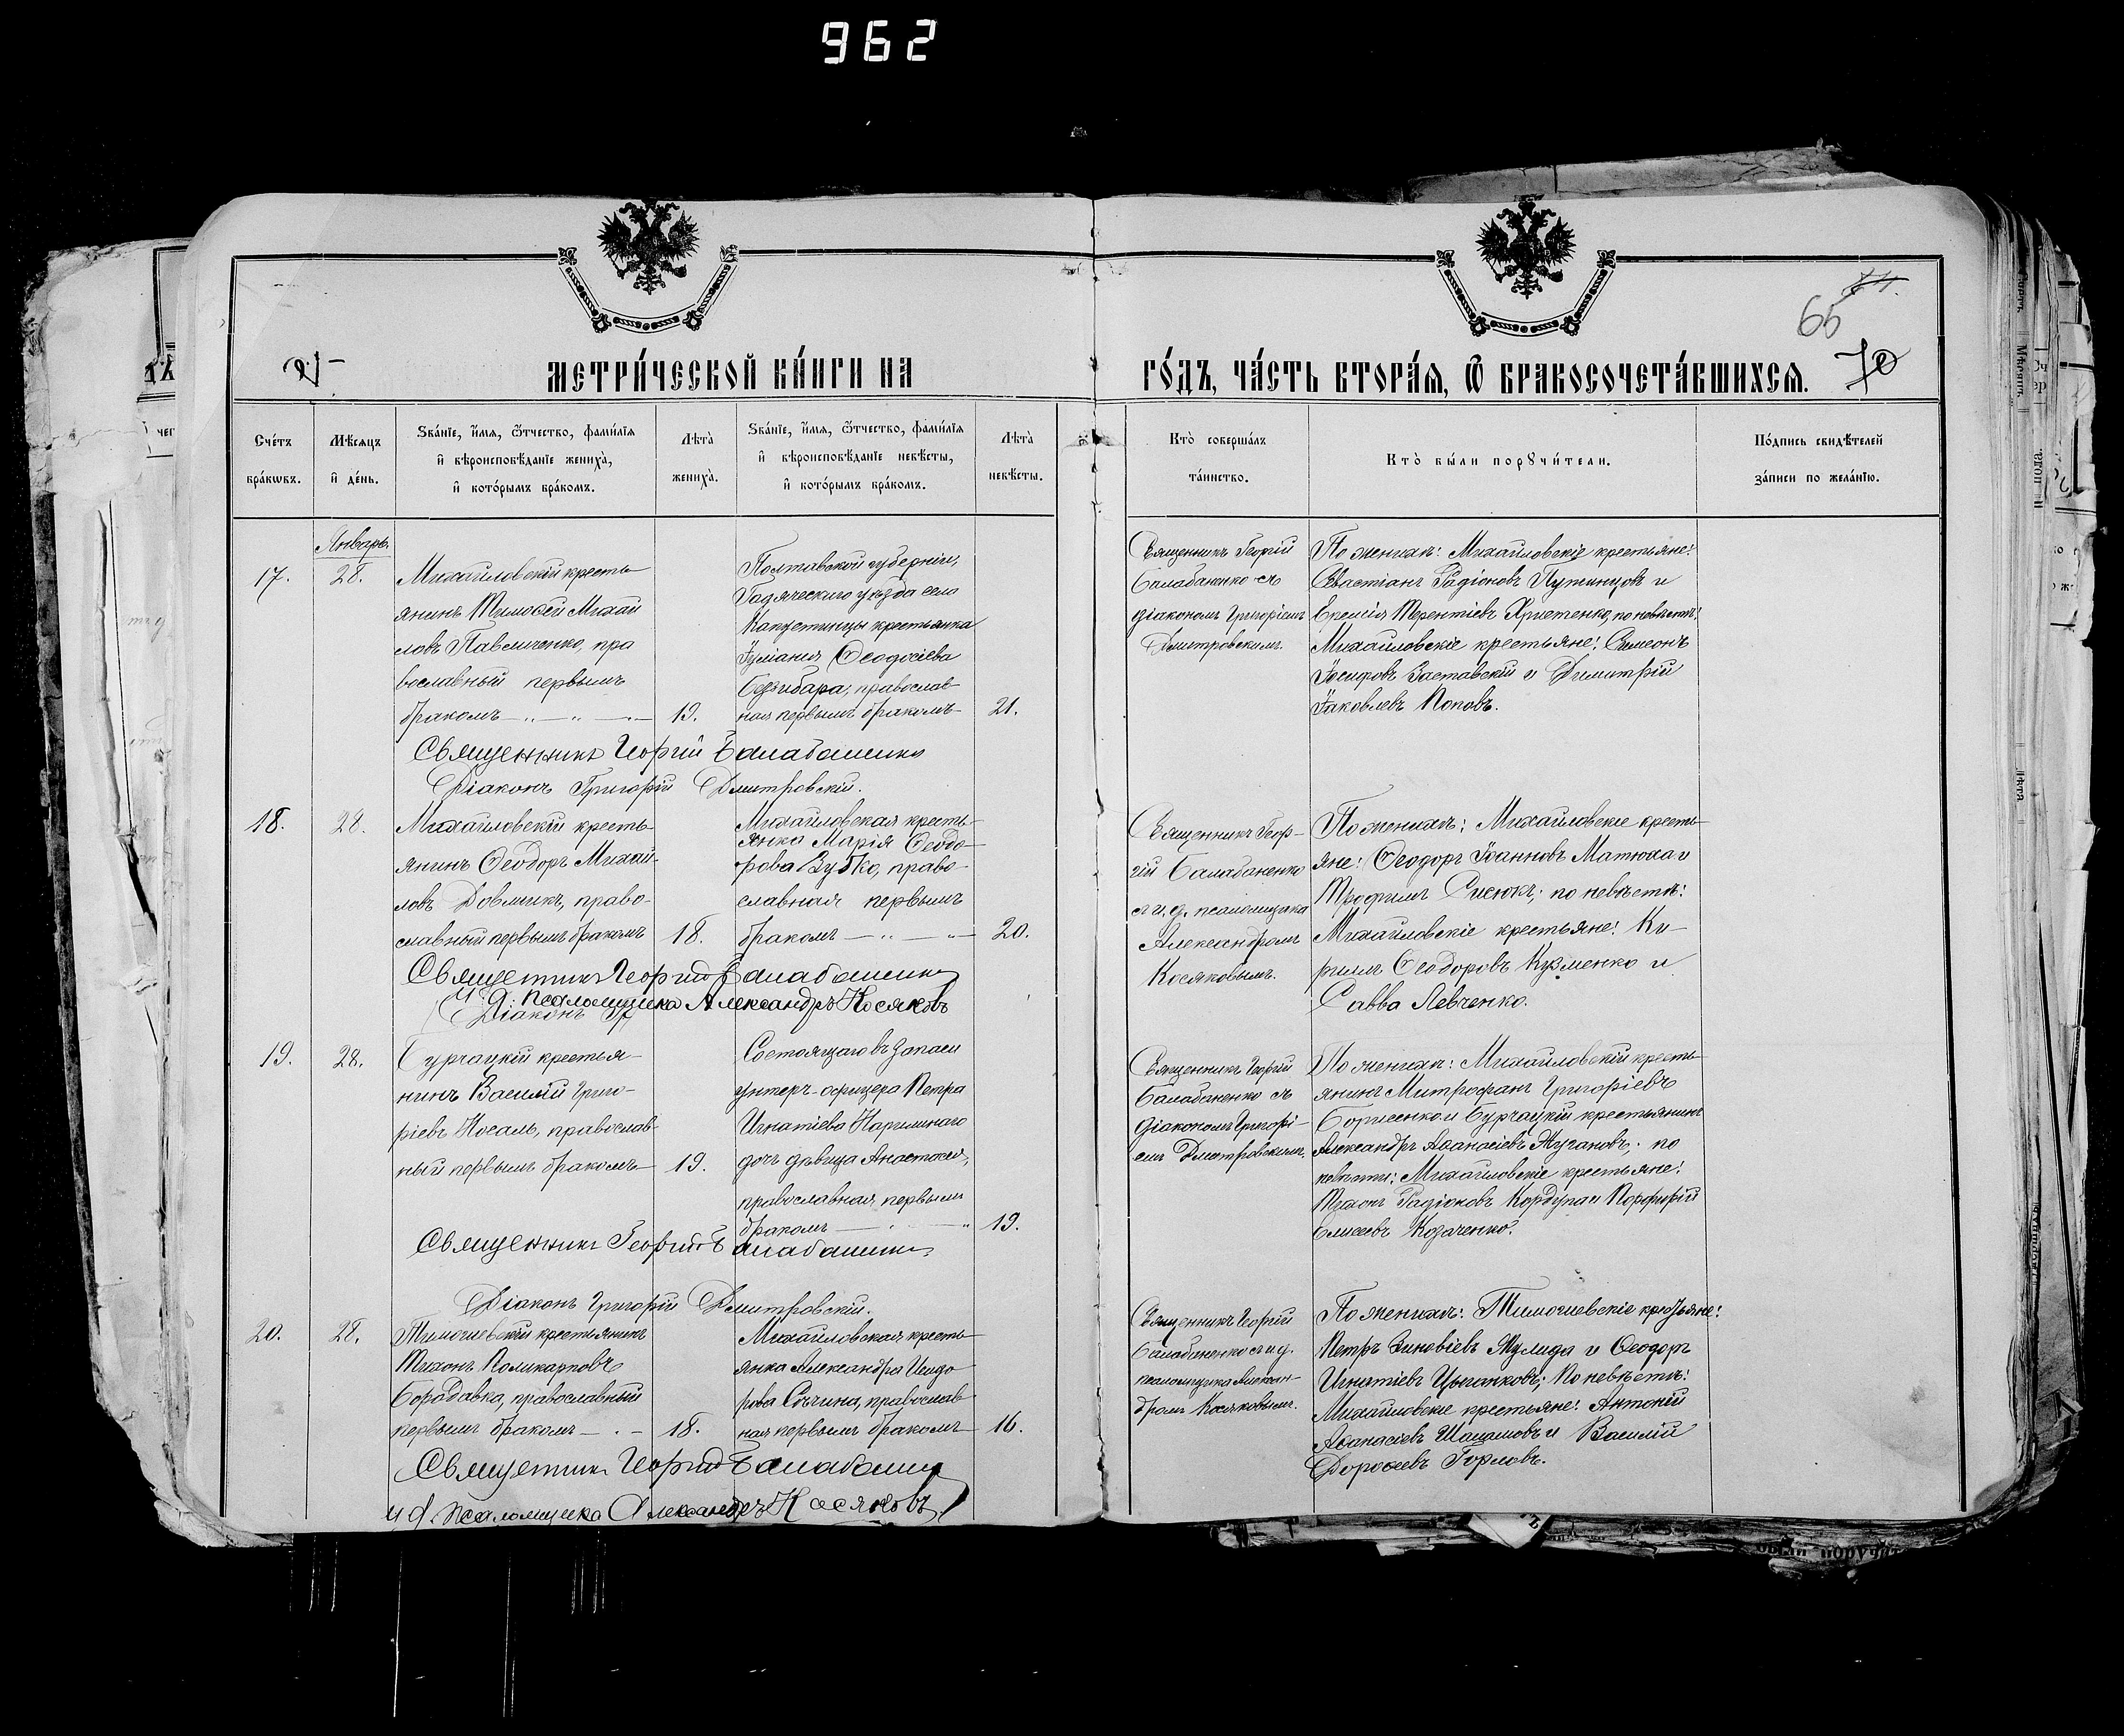 962
65
70
МЕТРИ́ЧЕСКОЙ КНИ́ГИ НА
ГО́ДЪ, ЧА́СТЬ ВТОРА́Я, Ѿ БРАКОСОЧЕТА́ВШИХСѦ.
Сче́тъ бра́кѡвъ.
Мѣ́сяцъ и҆ де́нь.
Зва́нїе, и҆́мѧ, ѻ҆́тчество, фами́лїѧ
и҆ вѣроисповѣ́данїе жениха̀,
и҆ кото́рымъ бра́комъ.
Лѣта̀ жениха̀.
Зва́нїе, и҆́мѧ, ѻ҆́тчество, фами́лїѧ
и҆ вѣроисповѣ́данїе невѣ́сты,
и҆ кото́рымъ бра́комъ.
Лѣта̀ невѣ́сты.
Кто̀ соверша́лъ та́инство.
Кто̀ бы́ли порꙋчи́тели.
По́дпись свидѣ́телей за́писи по жела́нїю.
Январь.
17.
28.
Михайловскій кресть-
янинъ Тимоѳей Михай
ловъ Павличенко, пра
вославный первымъ
бракомъ
19.
Полтавской губерніи,
Гадяческаго уѣзда села
Капустинцы крестьянка
Іуліанія Ѳеодосіева
православ-
ная первымъ бракомъ
21.
Священникъ Георгій
Балабаненко съ
діакономъ Григоріемъ
Дмитровскимъ.
По женихѣ: Михайловскіе крестьяне:
Севастіанъ Радіоновъ Путинцовъ и
Терентіевъ Христенко, по невѣстѣ:
Михайловскіе крестьяне: Симеонъ
Іосифовъ Заставскій и Димитрій
Іаковлевъ Поповъ.
Священникъ Георгій Балабаненко
Діаконъ Григорій Дмитровскій.
18.
28.
Михайловскій кресть-
янинъ Ѳеодоръ Михай-
ловъ Довмикъ, право-
славный первымъ бракомъ
18.
Михайловская кресть-
янка Марія Ѳеодо-
рова Зубко, право-
славная первымъ
бракомъ
20.
Священникъ Геор-
гій Балабаненко
съ и. д. псаломщика
Александромъ
Косяковымъ.
По женихѣ: Михайловскіе кресть-
яне: Ѳеодоръ Іоанновъ Матюха и
Трофимъ Сисюкъ; по невѣстѣ:
Михайловскіе крестьяне: Ки-
риллъ Ѳеодоровъ Кузменко и
Савва Левченко.
Священникъ Георгій Балабаненко
И. д. псаломщика Александръ Косяковъ
Діаконъ Гр
19.
28.
Бурчацкій крестья-
нинъ Василій Григо-
ріевъ Носаль, православ-
ный первымъ бракомъ
19.
Состоящаго въ запасѣ
унтеръ-офицера Петра
Игнатіева
дочь дѣвица Анастасія,
православная, первымъ
бракомъ
19.
Священникъ Георгій
Балабаненко съ
діакономъ Григорі-
емъ Дмитровскимъ.
По женихѣ: Михайловскій кресть-
янинъ Митрофанъ Григоріевъ
Борисенко и Бурчацкій крестьянинъ
Александръ Аѳанасіевъ по
невѣстѣ: Михайловскіе крестьяне:
Тихонъ Радіоновъ Кордупа и Порфирій
Елисеевъ Козаченко.
Священникъ Георгій Балабаненко
Діаконъ Григорій Дмитровскій.
20.
28.
Тимошевскій крестьянинъ
Тихонъ Поликарповъ
Бородавка, православный
первымъ бракомъ
18.
Михайловская кресть-
янка Александра Исидо
рова Сычина, православ
ная первымъ бракомъ
16.
Священникъ Георгій
Балабаненко съ и д.
псаломщика Алексан-
дромъ Косяковымъ.
По женихѣ: Тимошевскіе крестьяне:
Петръ Зиновіевъ Жулида и Ѳеодоръ
Игнатіевъ Цыганковъ; По невѣстѣ:
Михайловскіе крестьяне: Антоній
Аѳанасіевъ и Василій
Дороѳеевъ Горловъ.
Священникъ Георгій Балабаненко
и д. псаломщика Александръ Косяковъ